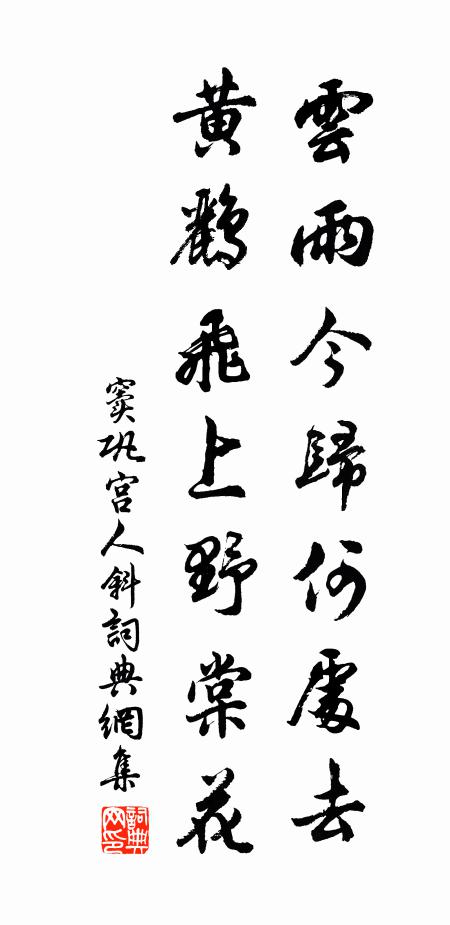 雲雨今歸何處去
黃鸝飛上野棠花
竇巩宮人斜詞典網集
詞典
网印